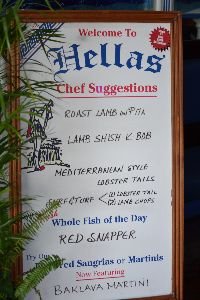 Welcome To
Hellas
Chef Suggestions
ROAST LAMB W/PITA
LAMB SHISH K BOB
MEDITERRANEAN STYLE
LOBSTER TAILS
SURF &TURF < (1) LOBSTER TAIL
(2) LAMB CHOPS
Whole Fish of the Day
RED SNAPPER
Try Our
Sangrias or Martinis
Now Featuring
BAKLAVA MARTINI